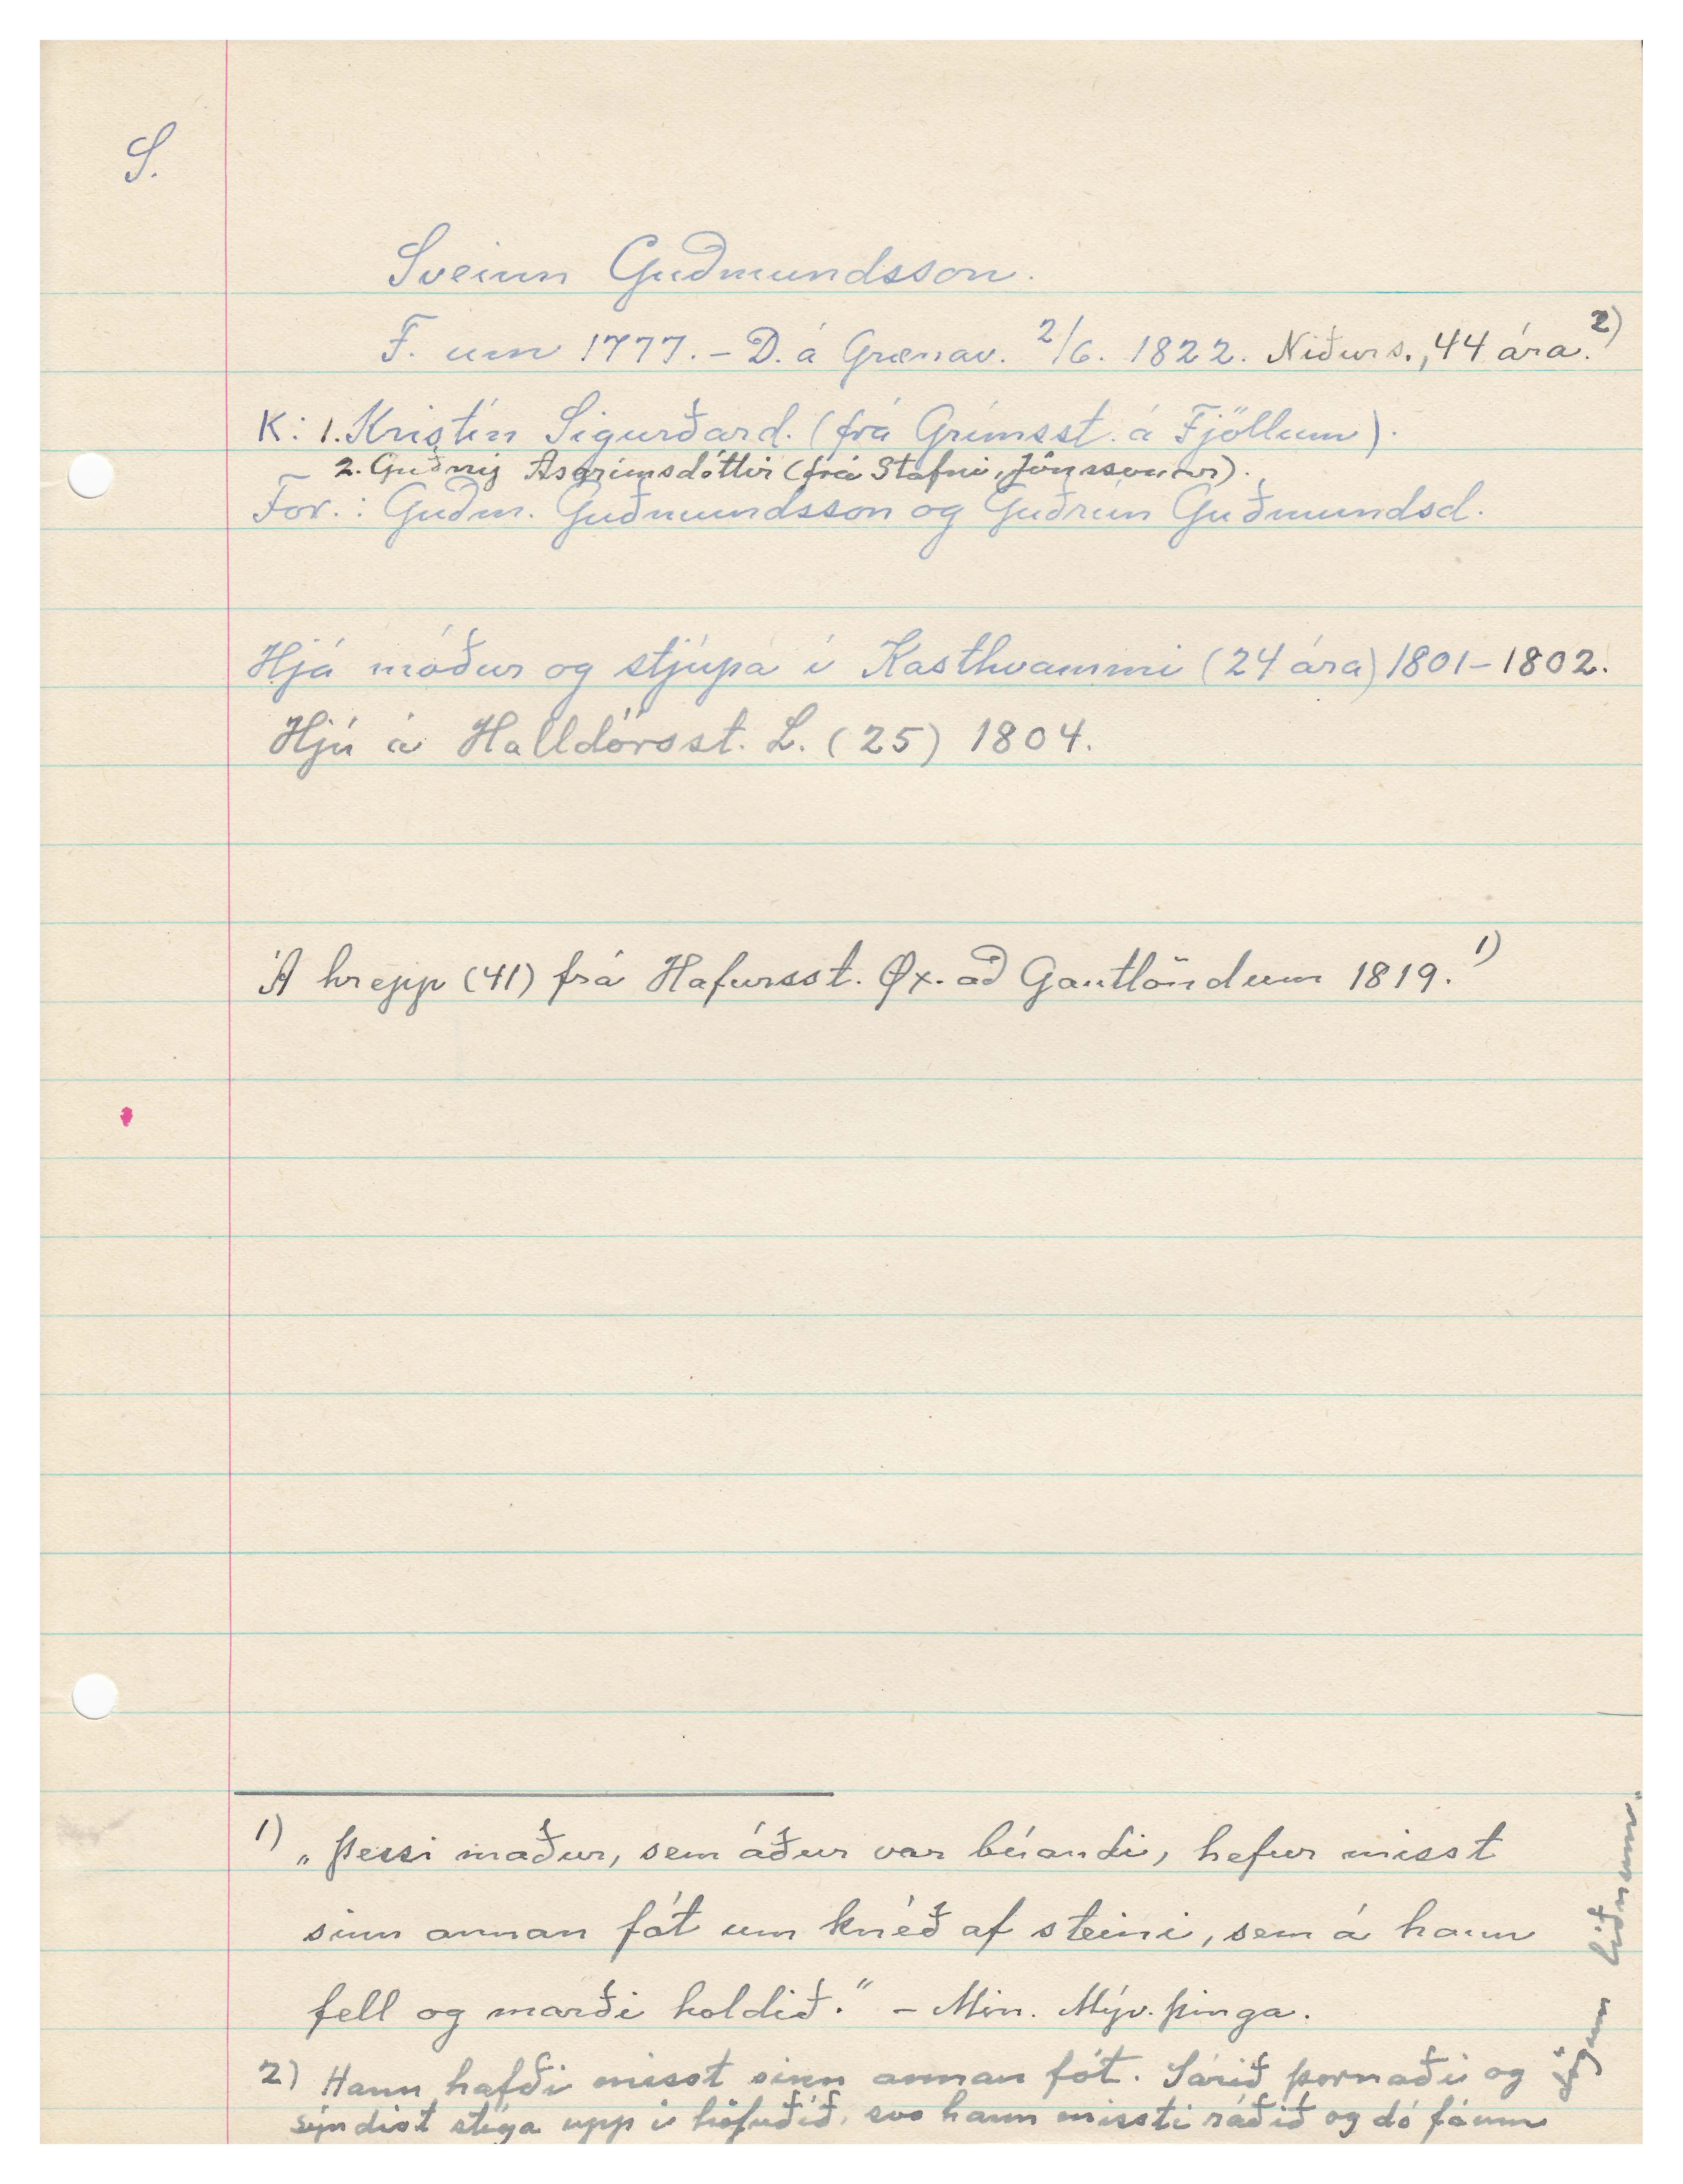 S.
Sveinn Guðmundsson.
F. um 1777. - D. á Grænav. 2/6. 1822. Niðurs., 44 ára. 2)
K: 1. Kristín Sigurðard. (frá Grímsst. á Fjöllum).
2. Guðný Ásgrímsdóttir (frá Stafni, Jónssonar).
For.: Guðm. Guðmundsson og Guðrún Guðmundsd.
Hjá móður og stjúpa í Kasthvammi (24 ára) 1801-1802.
Hjú á Halldórsst. L. (25) 1804.
Á hrepp (41) frá Hafursst. Øx. að Gautlöndum 1819. 1)
1) „Þessi maður, sem áður var búandi, hefur misst
sinn annan fót um knéð af steini, sem á hann
fell og marði holdið." - Min. Mýv. þinga.
2) Hann hafði misst sinn annan fót. Sárið þornaði og
sýndist stíga upp í höfuðið, svo hann missti ráðið og dó fáum
dögum liðnum."